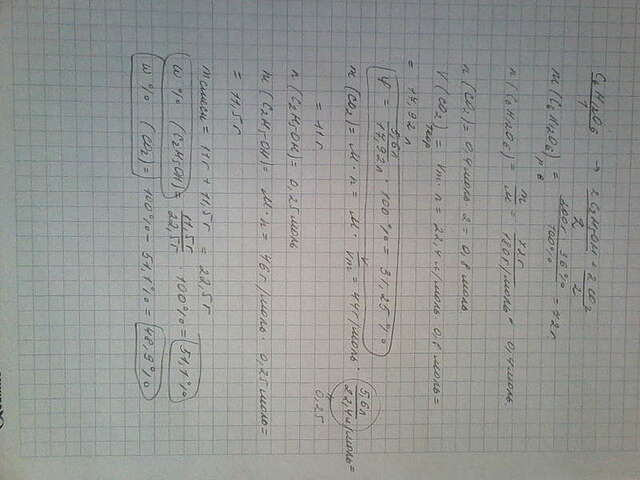 C₆H₁₂O₆ → 2C₂H₅OH + 2CO₂
1 2 2
m(C₆H₁₂O₆) р.в = 200г · 36% / 100% = 72г
n(C₆H₁₂O₆) = m/M = 72г / 180г/моль = 0,4моль
n(CO₂) = 0,4моль · 2 = 0,8 моль
V(CO₂) теор = Vm · n = 22,4 л/моль · 0,8 моль =
= 17,92 л
φ = 5,6л / 17,92л · 100% = 31,25%
n(CO₂) = M · n = M · V/Vm = 44г/моль · 5,6л / 22,4л/моль =
0,25
= 11г
n(C₂H₅OH) = 0,25моль
m(C₂H₅OH) = M · n = 46г/моль · 0,25моль =
= 11,5г
m смеси = 11г + 11,5г = 22,5г
ω% (C₂H₅OH) = 11,5г / 22,5г · 100% = 51,1%
ω% (CO₂) = 100% - 51,1% = 48,9%